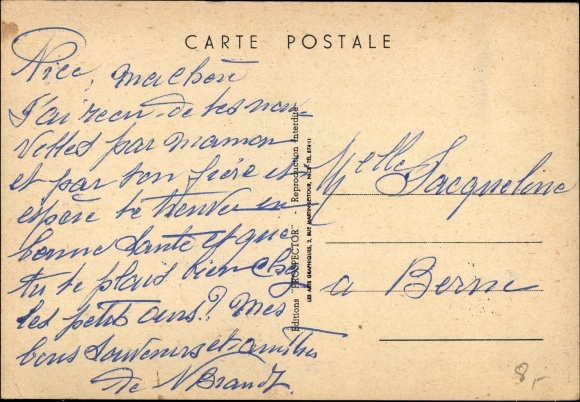 CARTE POSTALE
Nice, ma chère
J'ai reçu de tes nou-
velles par maman
et par ton frère et
espère te trouver en
bonne santé et que
tu te plais bien chez
les petits ours? Mes
bons souvenirs et amitiés
de N Brandt.
Editions "PROSPECTOR" - Reproduction interdite
LES ARTS GRAPHIQUES, 2, RUE
Melle Jacqueline
à Berne
8,-